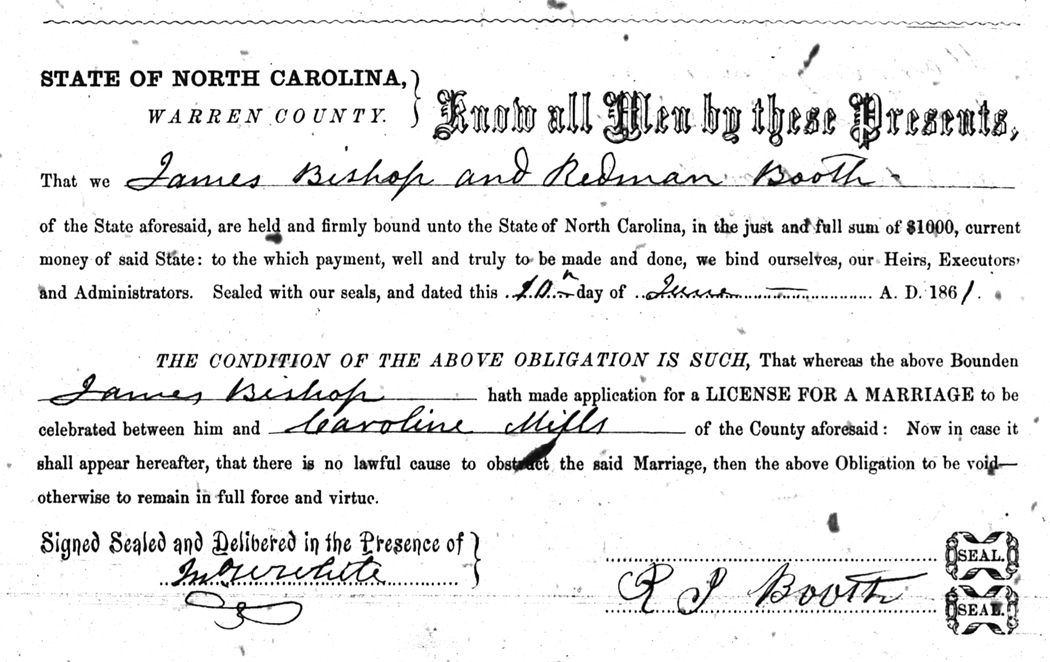 STATE OF NORTH CAROLINA, }
WARREN COUNTY. Know all Men by these Presents,
That we James Bishop and Redman Booth
of the State aforesaid, are held and firmly bound unto the State of North Carolina, in the just and full sum of $1000, current
money of said State: to the which payment, well and truly to be made and done, we bind ourselves, our Heirs, Executors,
and Administrators. Sealed with our seals, and dated this 10th day of June A. D. 1861.
THE CONDITION OF THE ABOVE OBLIGATION IS SUCH, That whereas the above Bounden
James Bishop hath made application for a LICENSE FOR A MARRIAGE to be
celebrated between him and Caroline Mills of the County aforesaid: Now in case it
shall appear hereafter, that there is no lawful cause to obstruct the said Marriage, then the above Obligation to be void—
otherwise to remain in full force and virtue.
Signed Sealed and Delivered in the Presence of }
SEAL.
White
R J Booth SEAL.